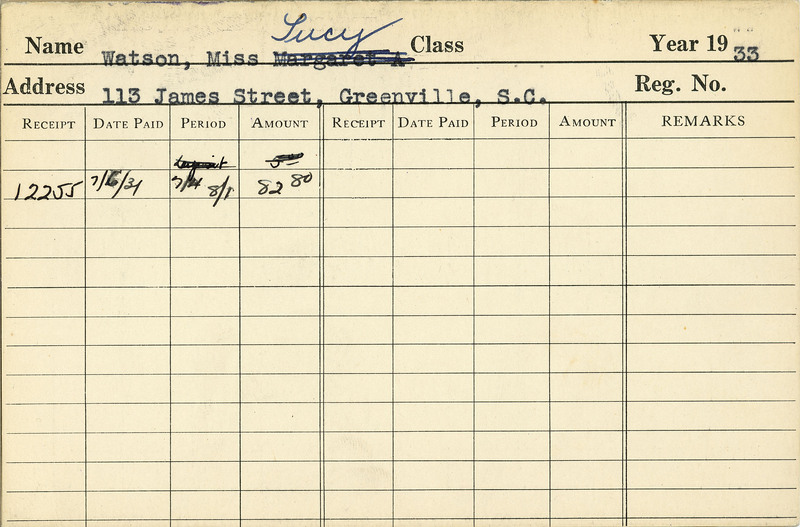 Lucy
Name Watson, Miss Margaret A Class Year 1933
Address 113 James Street, Greenville, S.C. Reg. No.
RECEIPT DATE PAID PERIOD AMOUNT RECEIPT DATE PAID PERIOD AMOUNT REMARKS
deposit 5-
12255 7/6/31 7/4 8/1 82 80